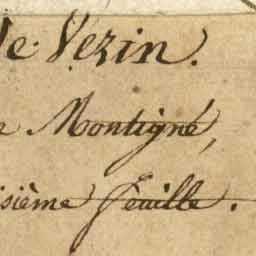 de Vezin.
e Montigné,
isième feuille.